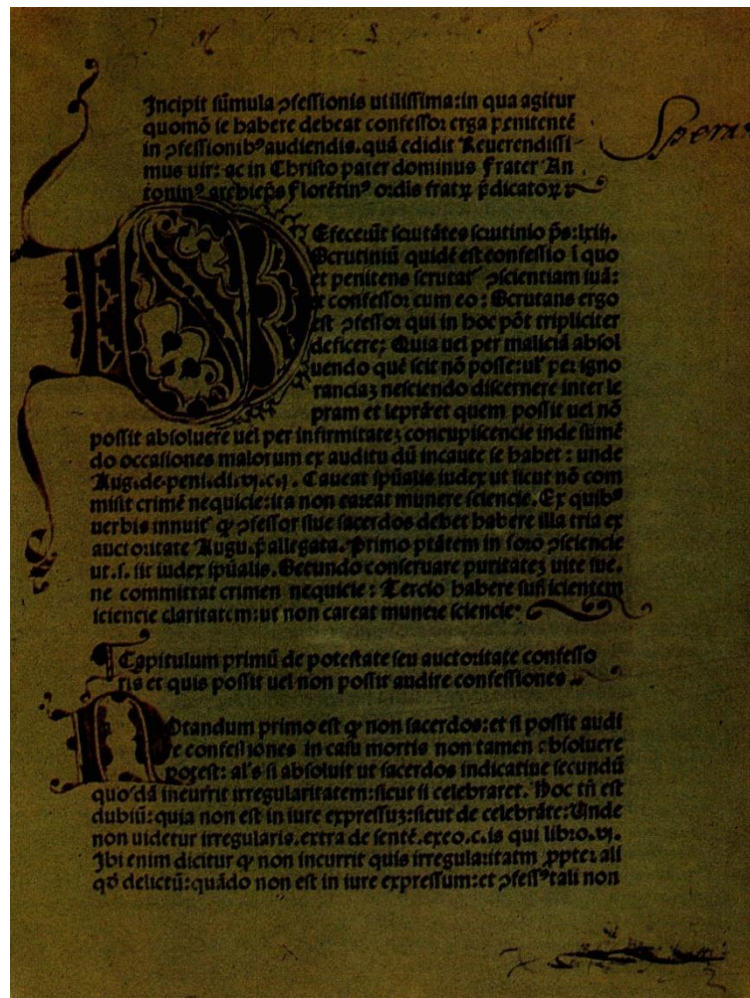 Incipit sũmula ↄfessionis utilissima:in qua agitur
quomō se habere debeat confessor erga penitentē
in ↄfessionibꝰ audiendis.quā edidit Reuerendissi-
mus uir: ac in Christo pater dominus Frater An
toninꝰ archiep̃s florētinꝰ ordis fratꝝ p̃dicatoꝝ
Speran
DEfecerūt scrutātes scrutinio p̃s:lxiij.
Scrutiniũ quidē est confessio ĩ quo
et penitens scrutat᷑ ↄscientiam suā:
et confessor cum eo: Scrutans ergo
est ↄfessor qui in hoc pōt tripliciter
deficere; Quia uel per maliciā absol
uendo quē scit nō posse:ul᷑ per igno
ranciaʒ nesciendo discernere inter le
pram et leprā:et quem possit uel nō
possit absoluere uel per infirmitateʒ concupiscencie inde sumē
do occasiones malorum ex auditu dũ incaute se habet : unde
Aug.de.peni.di.vj.c.j. Caueat sp̃ualis iudex ut sicut nō com
misit crimē nequicie:ita non careat munere sciencie. Ex quibꝰ
uerbis innuit᷑ ꝙ ↄfessor siue sacerdos debet habere illa tria ex
auctoritate Augu.p̃allegata. Primo ptātem in foro ↄsciencie
ut.s. sit iudex sp̃ualis. Secundo conseruare puritateʒ uite sue.
ne committat crimen nequicie : Tercio habere sufficientem
sciencie claritatem:ut non careat munere sciencie:
Capitulum primũ de potestate seu auctoritate confesso
ris et quis possit uel non possit audire confessiones
NOtandum primo est ꝙ non sacerdos:et si possit audi
re confessiones in casu mortis non tamen absoluere
potest: al's si absoluit ut sacerdos indicatiue secundũ
quosdā incurrit irregularitatem:sicut si celebraret. Hoc tñ est
dubiũ: quia non est in iure expressuʒ:sicut de celebrāte:Unde
non uidetur irregularis.extra de sentē.exco.c.is qui libro.vj.
Ibi enim dicitur ꝙ non incurrit quis irregularitatm ꝓpter ali
qđ delictũ:quādo non est in iure expressum:et ↄfessꝰ tali non